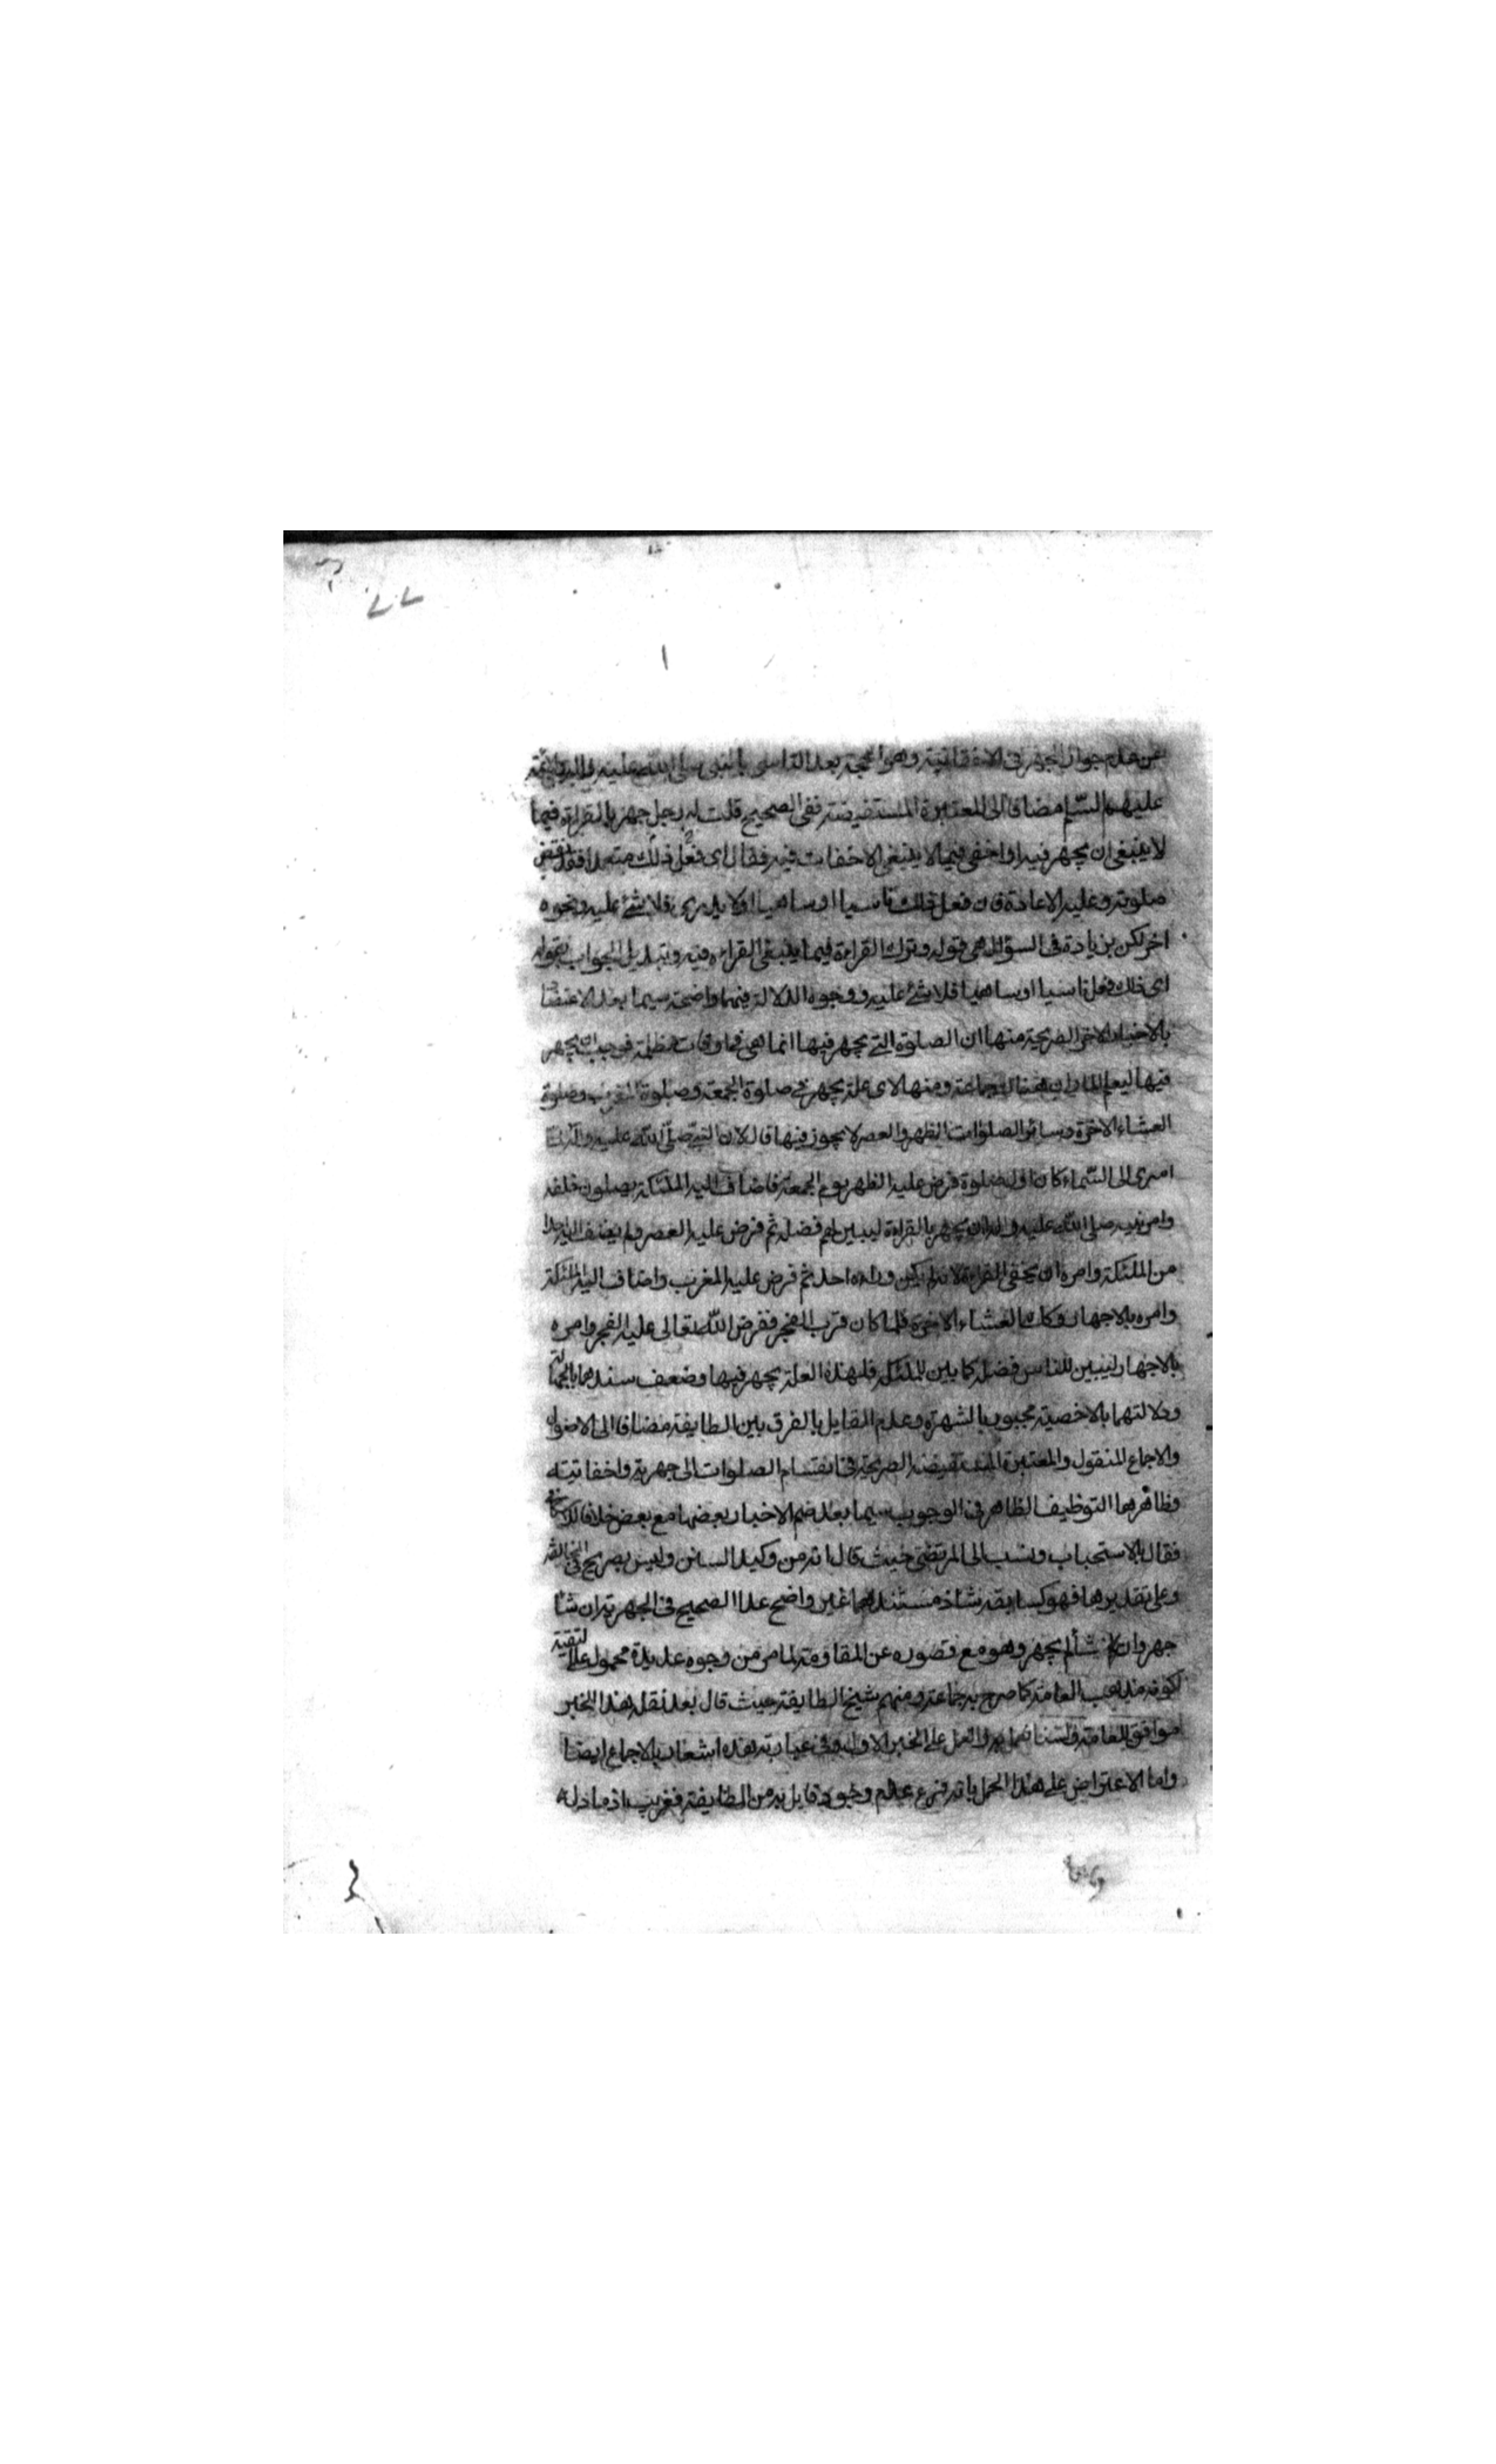 ٧٧
١
عن عدم جواز الجهر في الاخفاتية وهو الحجة بعد التاسي بالنبي صلى الله عليه واله والائمة
عليهم السلم مضافا الى المعتبرة المستفيضة ففي الصحيح قلت له رجل جهر بالقراءة فيما
لا ينبغي ان يجهر فيه او اخفى فيما لا ينبغي الاخفات فيه فقال اى فعل ذلك متعمدا فقد نقض
صلوته وعليه الاعادة فان فعل ذلك ناسيا او ساهيا او لا يدرى فلا شئ عليه ونحوه
اخر لكن بزيادة في السؤال هي قوله وترك القراءة فيما ينبغي القراءة فيه وتبديل الجواب بقوله
اى ذلك فعل ناسيا او ساهيا فلا شئ عليه ووجوه الدلالة فيهما واضحة سيما بعد الاعتضا
بالاخبار الاخر الصريحة منها ان الصلوة التى يجهر فيها انما هي في اوقات مظلمة فوجب ان يجهر
فيها ليعلم المار ان هناك جماعة ومنها لاى علة يجهر في صلوة الجمعة وصلوة المغرب وصلوة
العشاء الاخرة وسائر الصلوات الظهر والعصر لا يجهر فيها قال لان النبي صلى الله عليه واله لما
اسرى الى السماء كان اول صلوة فرض عليه الظهر يوم الجمعة فاضاف اليه الملئكة يصلون خلفه
وامر نبيه صلى الله عليه واله ان يجهر بالقراءة ليبين لهم فضله ثم فرض عليه العصر ولم يضف اليه احدا
من الملئكة وامره ان يخفى القراءة لانه لم يكن وراءه احد ثم فرض عليه المغرب واضاف اليه الملئكة
وامره بالاجهار وكذلك العشاء الاخرة فلما كان قرب الفجر ففرض الله تعالى عليه الفجر وامره
بالاجهار ليبين للناس فضله كما بين للملئكة فلهذه العلة يجهر فيها وضعف سندهما بالجهالة
ودلالتهما بالاخصية مجبور بالشهرة وعدم القايل بالفرق بين الطايفة مضافا الى الاصول
والاجماع المنقول والمعتبرة المستفيضة الصريحة في انقسام الصلوات الى جهرية واخفاتيته
وظاهرها التوظيف الظاهر في الوجوب سيما بعد ضم الاخبار بعضها مع بعض خلافا للاسكافي
فقال بالاستحباب ونسب الى المرتضى حيث قال انه من وكيد السنن وليس بصريح في المخالفة
وعلى تقديرها فهو كسابقه شاذ مستندهما غير واضح عدا الصحيح في الجهرية ان شأ
جهر وان شأ لم يجهر وهو مع قصوره عن المقاومة لما مر من وجوه عديدة محمول على التقية
لكونه مذهب العامة كما صرح به جماعة ومنهم شيخ الطايفة حيث قال بعد نقل هذا الخبر
موافق للعامة ولسنا نعمل به والعمل على الخبر الاول وفي عبارته هذه اشعار بالاجماع ايضا
واما الاعتراض على هذا الحمل بانه فرع عدم وجود قايل به من الطايفة فغريب اذ ما دل